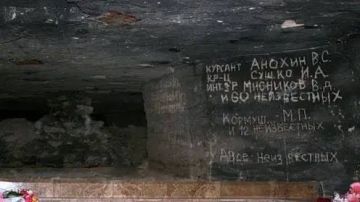 КУРСАНТ АНОХИН В.С.
КР-Ц СУШКО И.А.
ИНТ. 3Р МЯСНИКОВ В.Д.
И 60 НЕИЗВЕСТНЫХ
КОРМУШ... М.П.
И 12 НЕИЗВЕСТНЫХ
НЕИЗВЕСТНЫХ